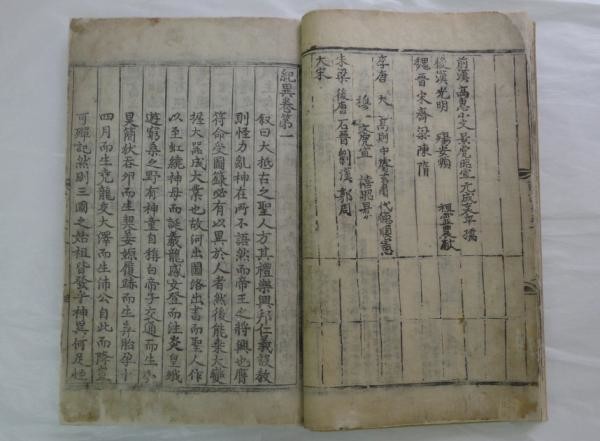 前漢 高惠小文景虎昭宣元成哀平孺
後漢光明 章安順 桓靈農獻
魏晉宋齊梁陳隋
李唐 太 高則中睿玄肅代德順憲
穆 文虎宣 僖昭景
朱梁後唐石晉劉漢郭周
大宋
紀異卷第一
叙曰大抵古之聖人方其禮樂興邦仁義設教
則怪力亂神在所不語然而帝王之將興也膺
符命受圖籙必有以異於人者然後能乘大變
握大器成大業也故河出圖洛出書而聖人作
以至虹繞神母而誕羲龍感女登而注炎皇娥
遊窮桑之野有神童自稱白帝子交通而生小
昊簡狄吞卵而生契姜嫄履跡而生弃胎孕十
四月而生堯龍交大澤而生沛公自此而降豈
可殫記然則三國之始祖皆發乎神異何足怪